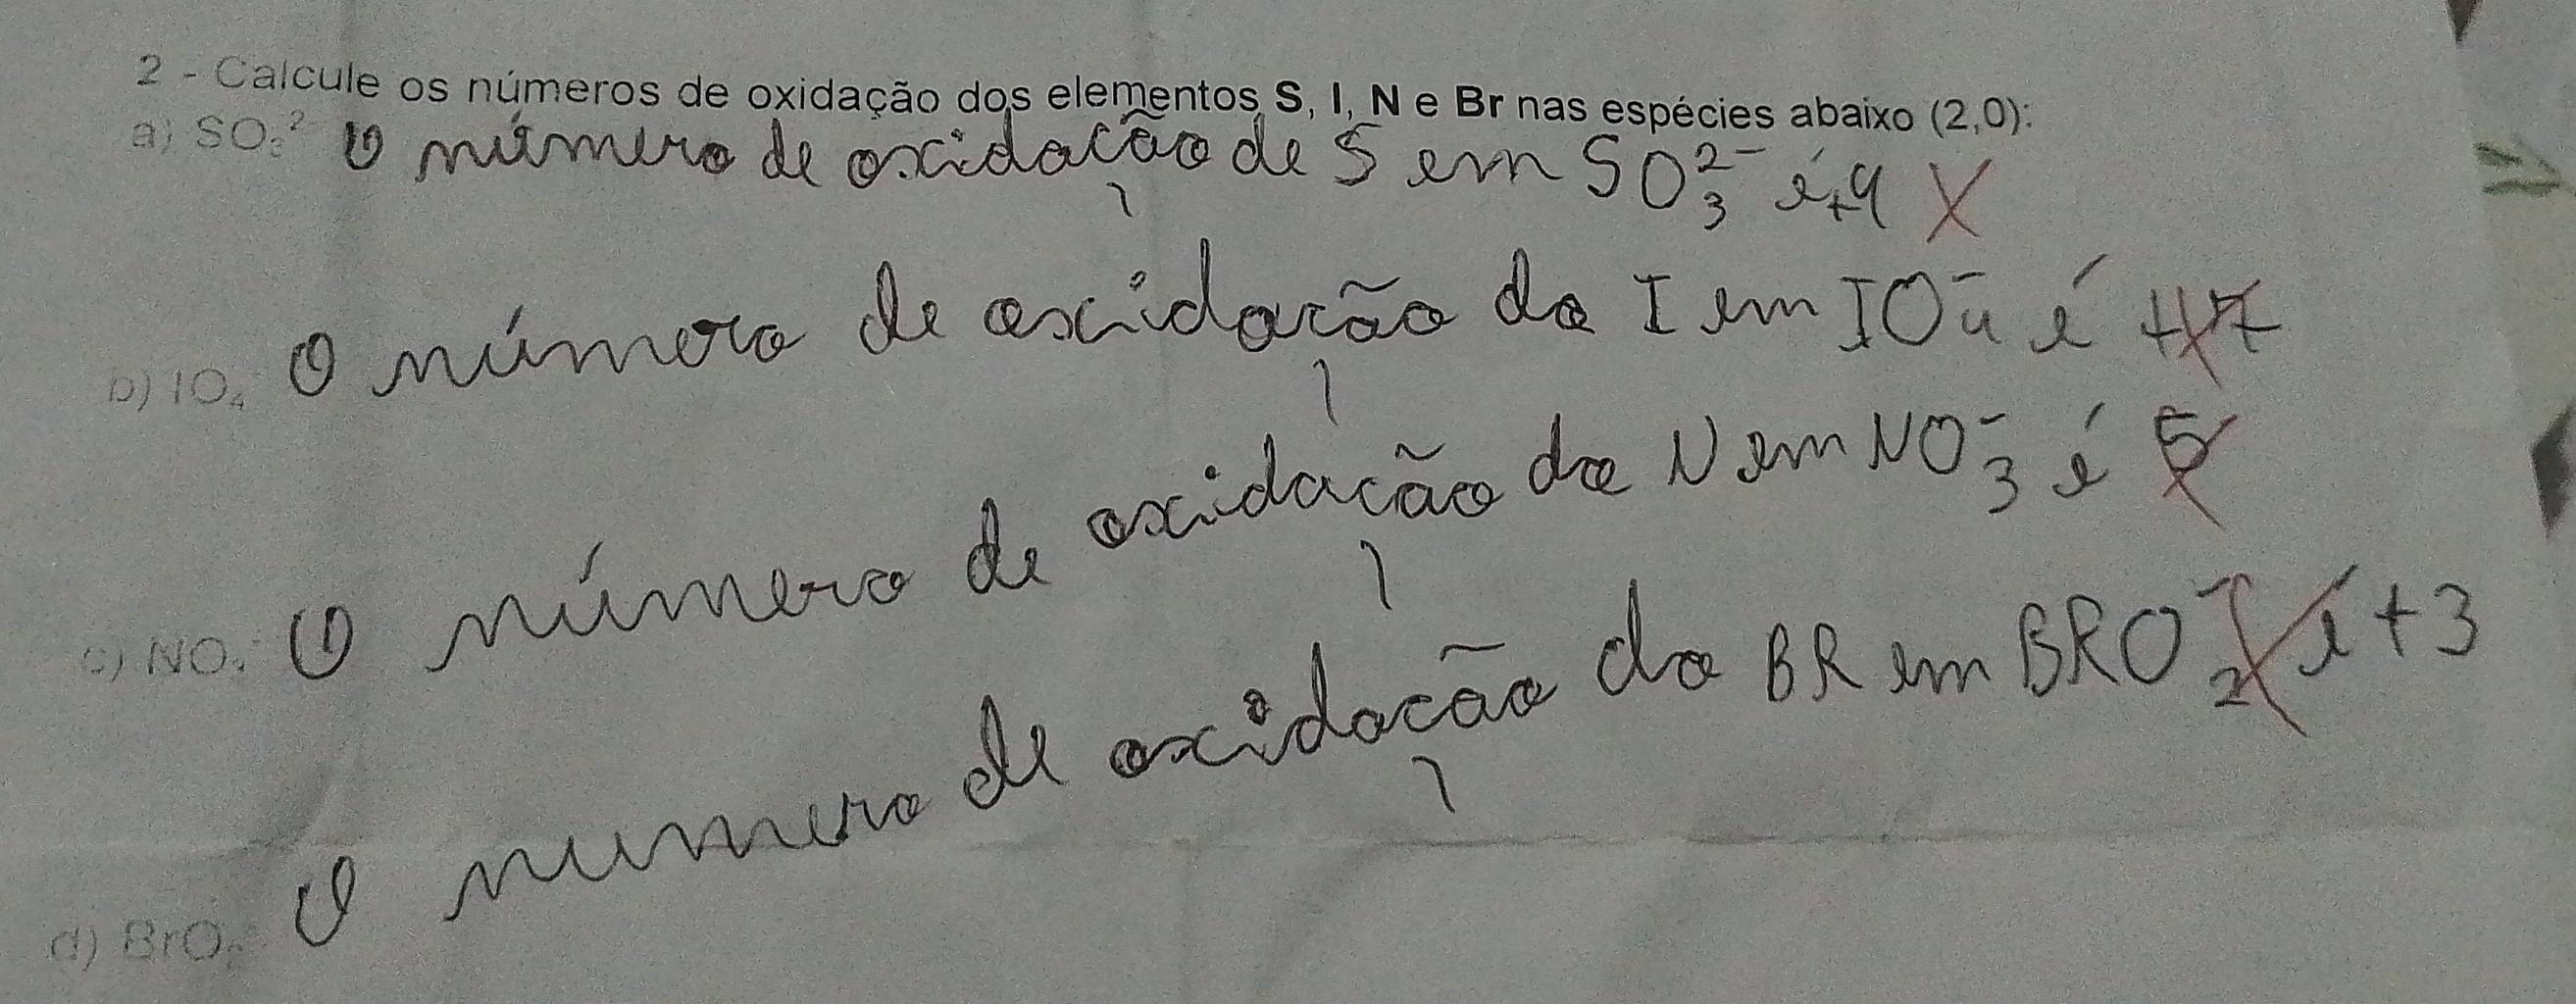 2 - Calcule os números de oxidação dos elementos S, I, N e Br nas espécies abaixo (2,0):
a) SO₃² O número de oxidação de S em SO₃²⁻ é +4 X
b) IO₄ O número de oxidação do I em IO₄⁻ é +7
c) NO₃⁻ O número de oxidação do N em NO₃⁻ é 5
d) BrO₂ O numero de oxidação do BR em BRO₂⁻ é +3